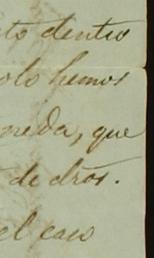 to dentro
olo hemos
neda, que
de dros.
el caso